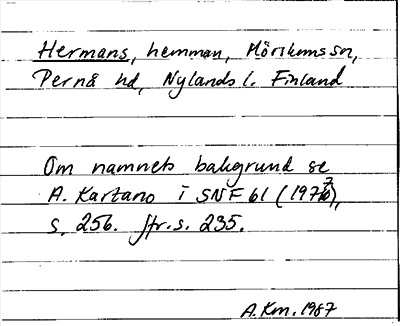 Hermans, hemman, Mörskoms sn,
Pernå hd, Nylands l. Finland
Om namnets bakgrund se
A. Kartano i SNF 61 (1977),
s. 256. Jfr. s. 235.
A.Km. 1987